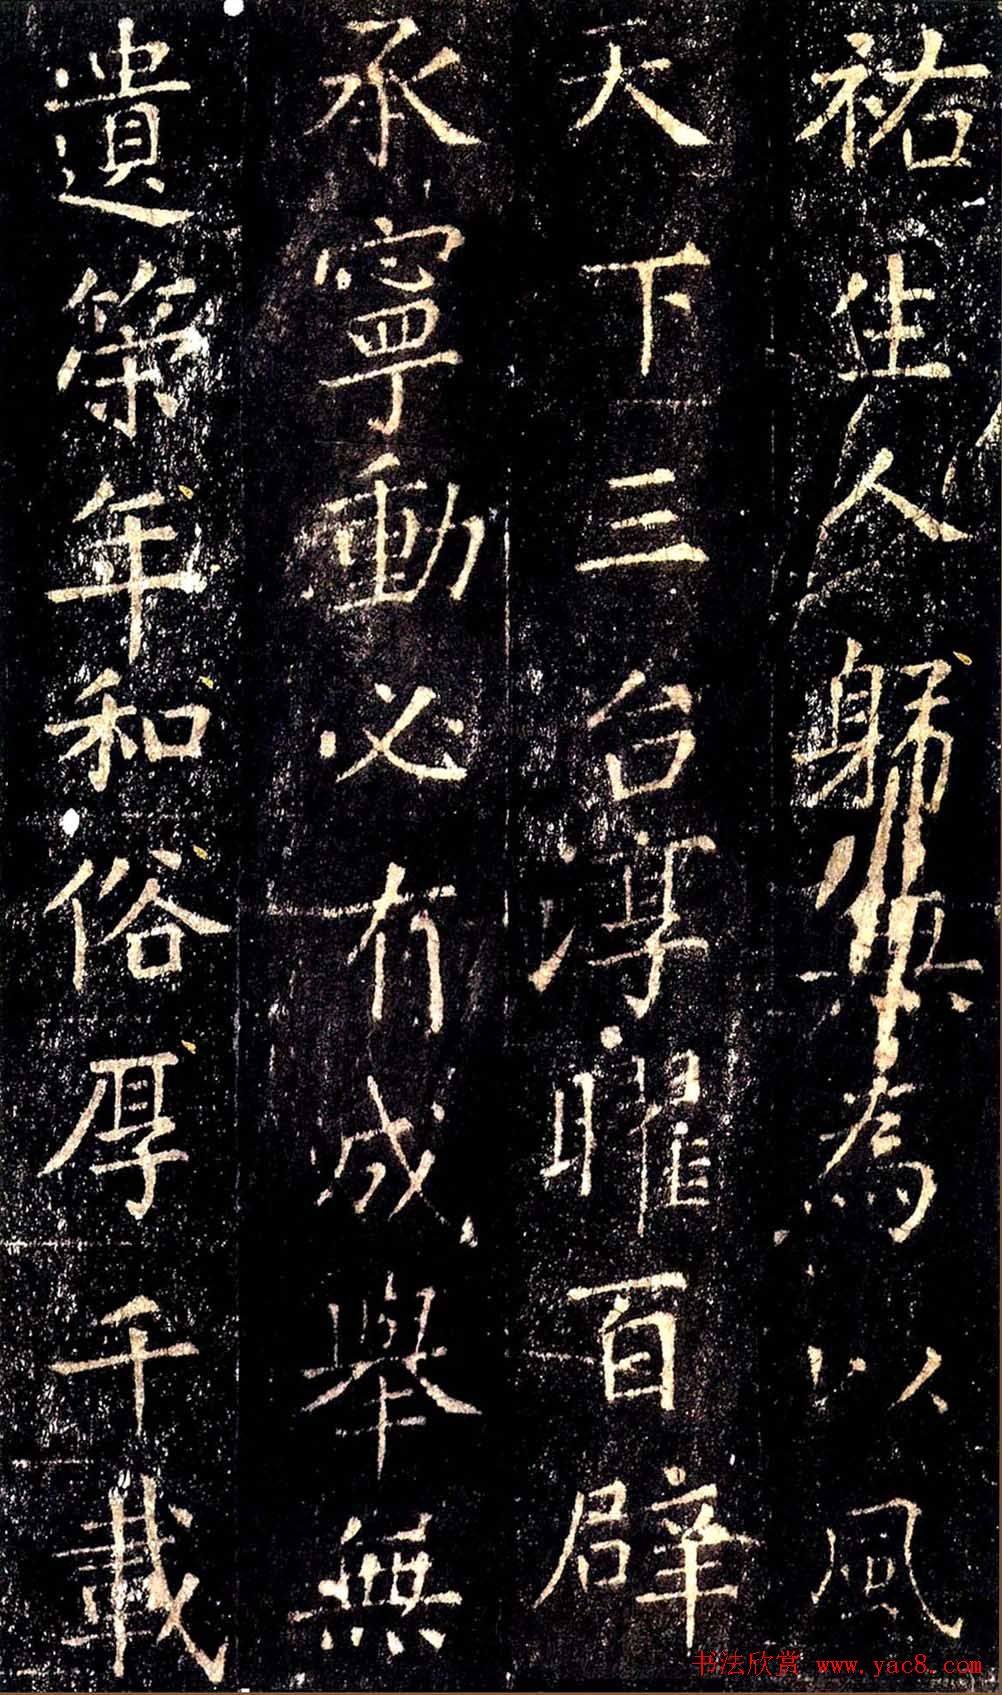 祐生人躬為以風
天下三台淳曜百辟
承寧動必有成舉無
遺策年和俗厚千載
书法欣赏 www.yac8.com